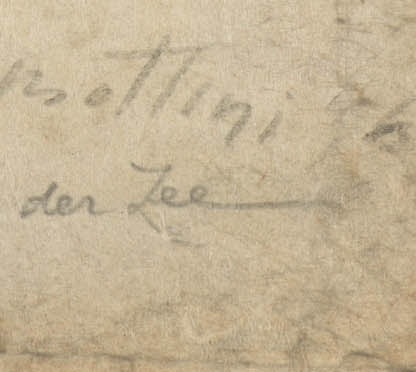 Bottini
der Zee